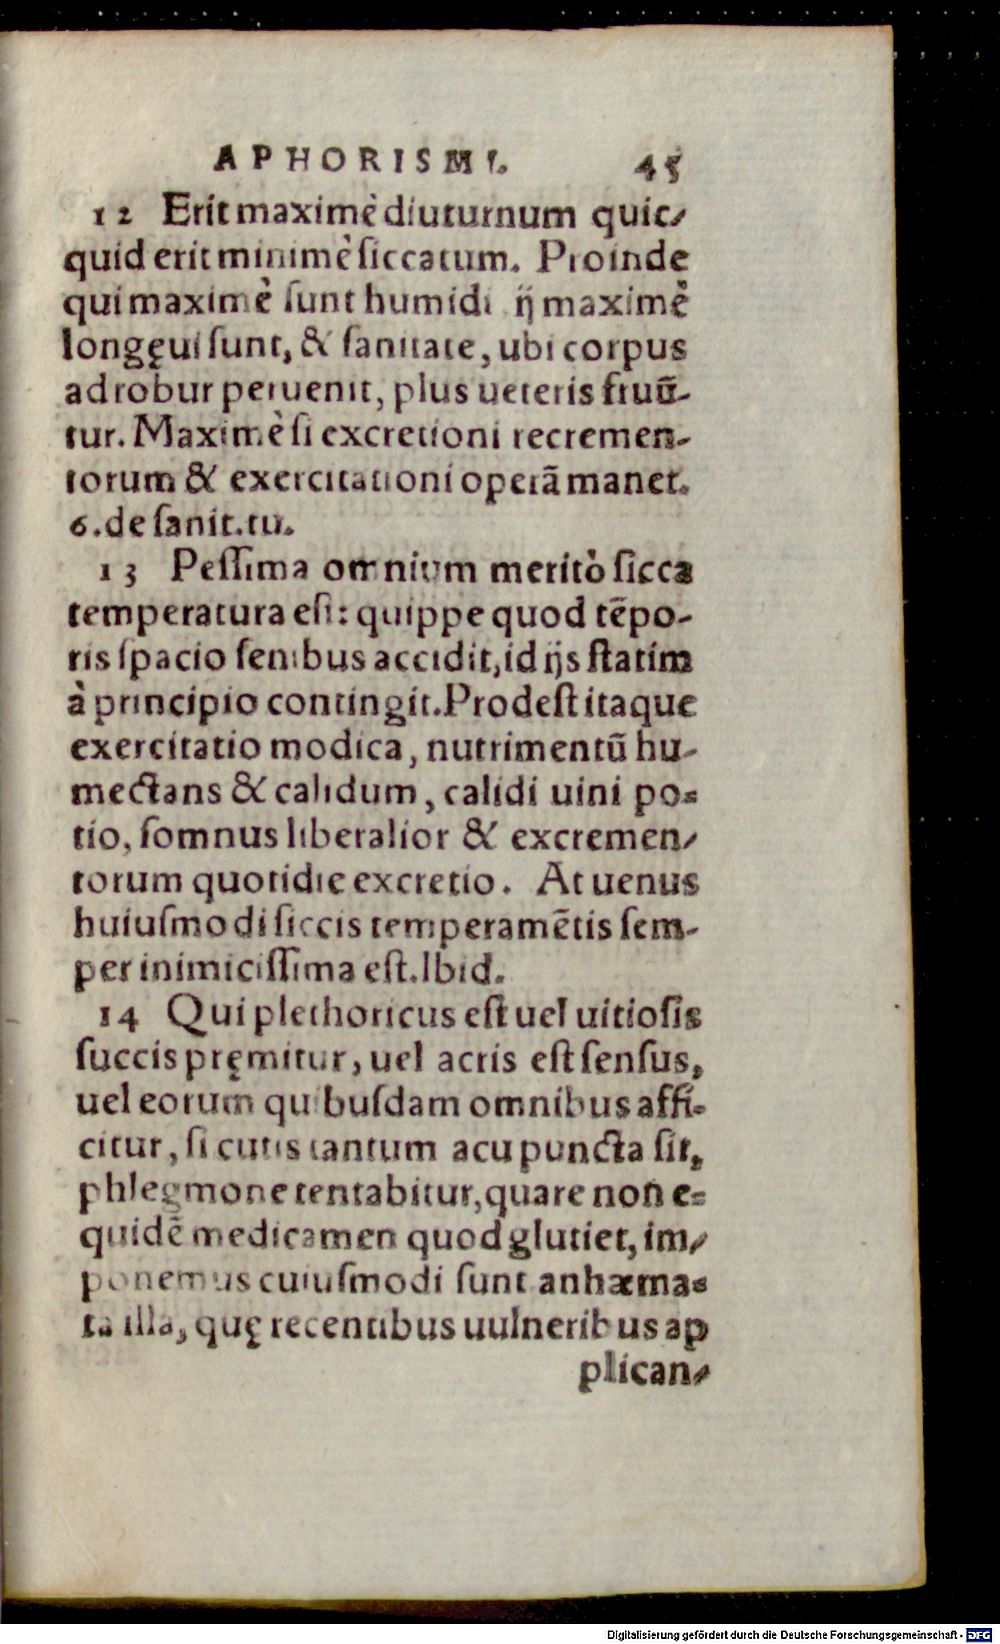 APHORISMI. 45
12 Erit maximè diuturnum quic-
quid erit minimè ſiccatum. Proinde
qui maximè ſunt humidi ij maximè
longęui ſunt, & ſanitate, ubi corpus
ad robur peruenit, plus ueteris fruū-
tur. Maximè ſi excretioni recremen-
torum & exercitationi operā manet.
6. de ſanit. tu.
13 Peſſima omnium meritò ſicca
temperatura eſt: quippe quod tēpo-
ris ſpacio ſenibus accidit, id ijs ſtatim
à principio contingit. Prodeſt itaque
exercitatio modica, nutrimentū hu-
mectans & calidum, calidi uini po-
tio, ſomnus liberalior & excremen-
torum quotidie excretio. At uenus
huiuſmodi ſiccis temperamētis ſem-
per inimiciſſima eſt. Ibid.
14 Qui plethoricus eſt uel uitioſis
ſuccis pręmitur, uel acris eſt ſenſus,
uel eorum quibuſdam omnibus affi-
citur, ſi cutis tantum acu puncta ſit,
phlegmone tentabitur, quare non e-
quidē medicamen quod glutiet, im-
ponemus cuiuſmodi ſunt anhæma-
ta illa, quę recentibus uulneribus ap
plican-
Digitalisierung gefördert durch die Deutsche Forschungsgemeinschaft - DFG